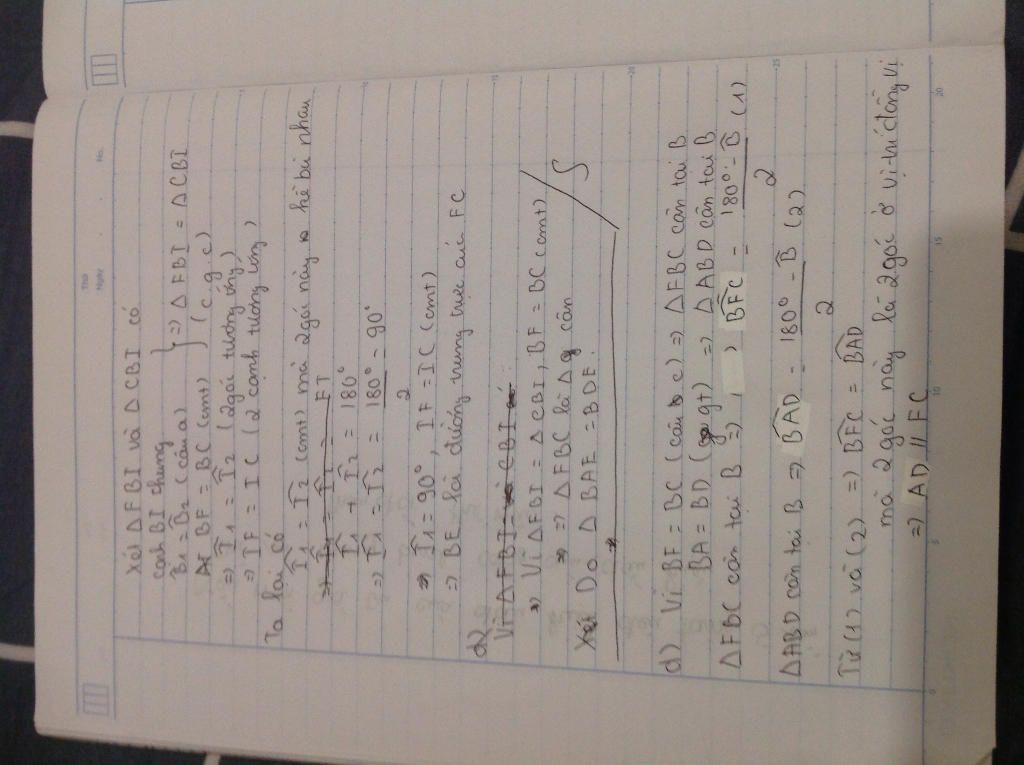 Thứ
Ngày
No.
Xét ΔFBI và ΔCBI có
cạnh BI chung
B̂1 = B̂2 (câu a) } => ΔFBI = ΔCBI
BF = BC (cmt) } (c.g.c)
=> Î1 = Î2 (2 góc tương ứng)
=> IF = IC (2 cạnh tương ứng)
Ta lại có
Î1 = Î2 (cmt) mà 2 góc này kề bù nhau
Î1 + Î2 = 180°
=> Î1 = Î2 = 180°/2 = 90°
=> Î1 = 90°, IF = IC (cmt)
=> BE là đường trung trực của FC
d)
Vì ΔFBI = ΔCBI :
=> Vì ΔFBI = ΔCBI, BF = BC (cmt)
=> ΔFBC là Δ cân
Do ΔBAE = BDE.
d) Vì BF = BC (câu c) => ΔFBC cân tại B
BA = BD (gt) => ΔABD cân tại B
ΔFBC cân tại B => BFC = (180° - B̂)/2 (1)
ΔABD cân tại B => BAD = (180° - B̂)/2 (2)
Từ (1) và (2) => BFC = BAD
mà 2 góc này là 2 góc ở vị trí đồng vị
=> AD // FC
5
10
15
20
25
20